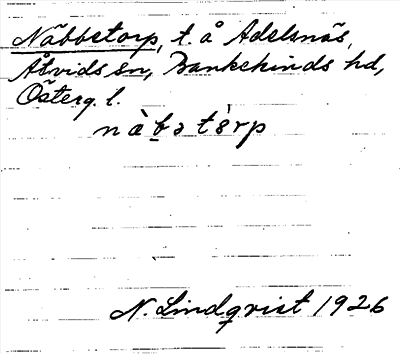 Näbbetorp, t. å Adelsnäs,
Åtvids sn, Bankekinds hd,
Österg. l.
nàb̠ə tὲrp
N. Lindqvist 1926